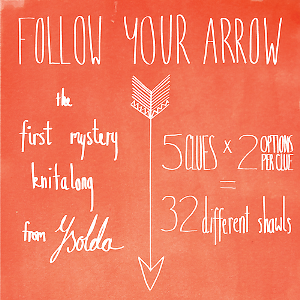 FOLLOW YOUR ARROW
the
first mystery
knitalong
from Ysolda
5 CLUES x 2 OPTIONS PER CLUE
=
32 different shawls